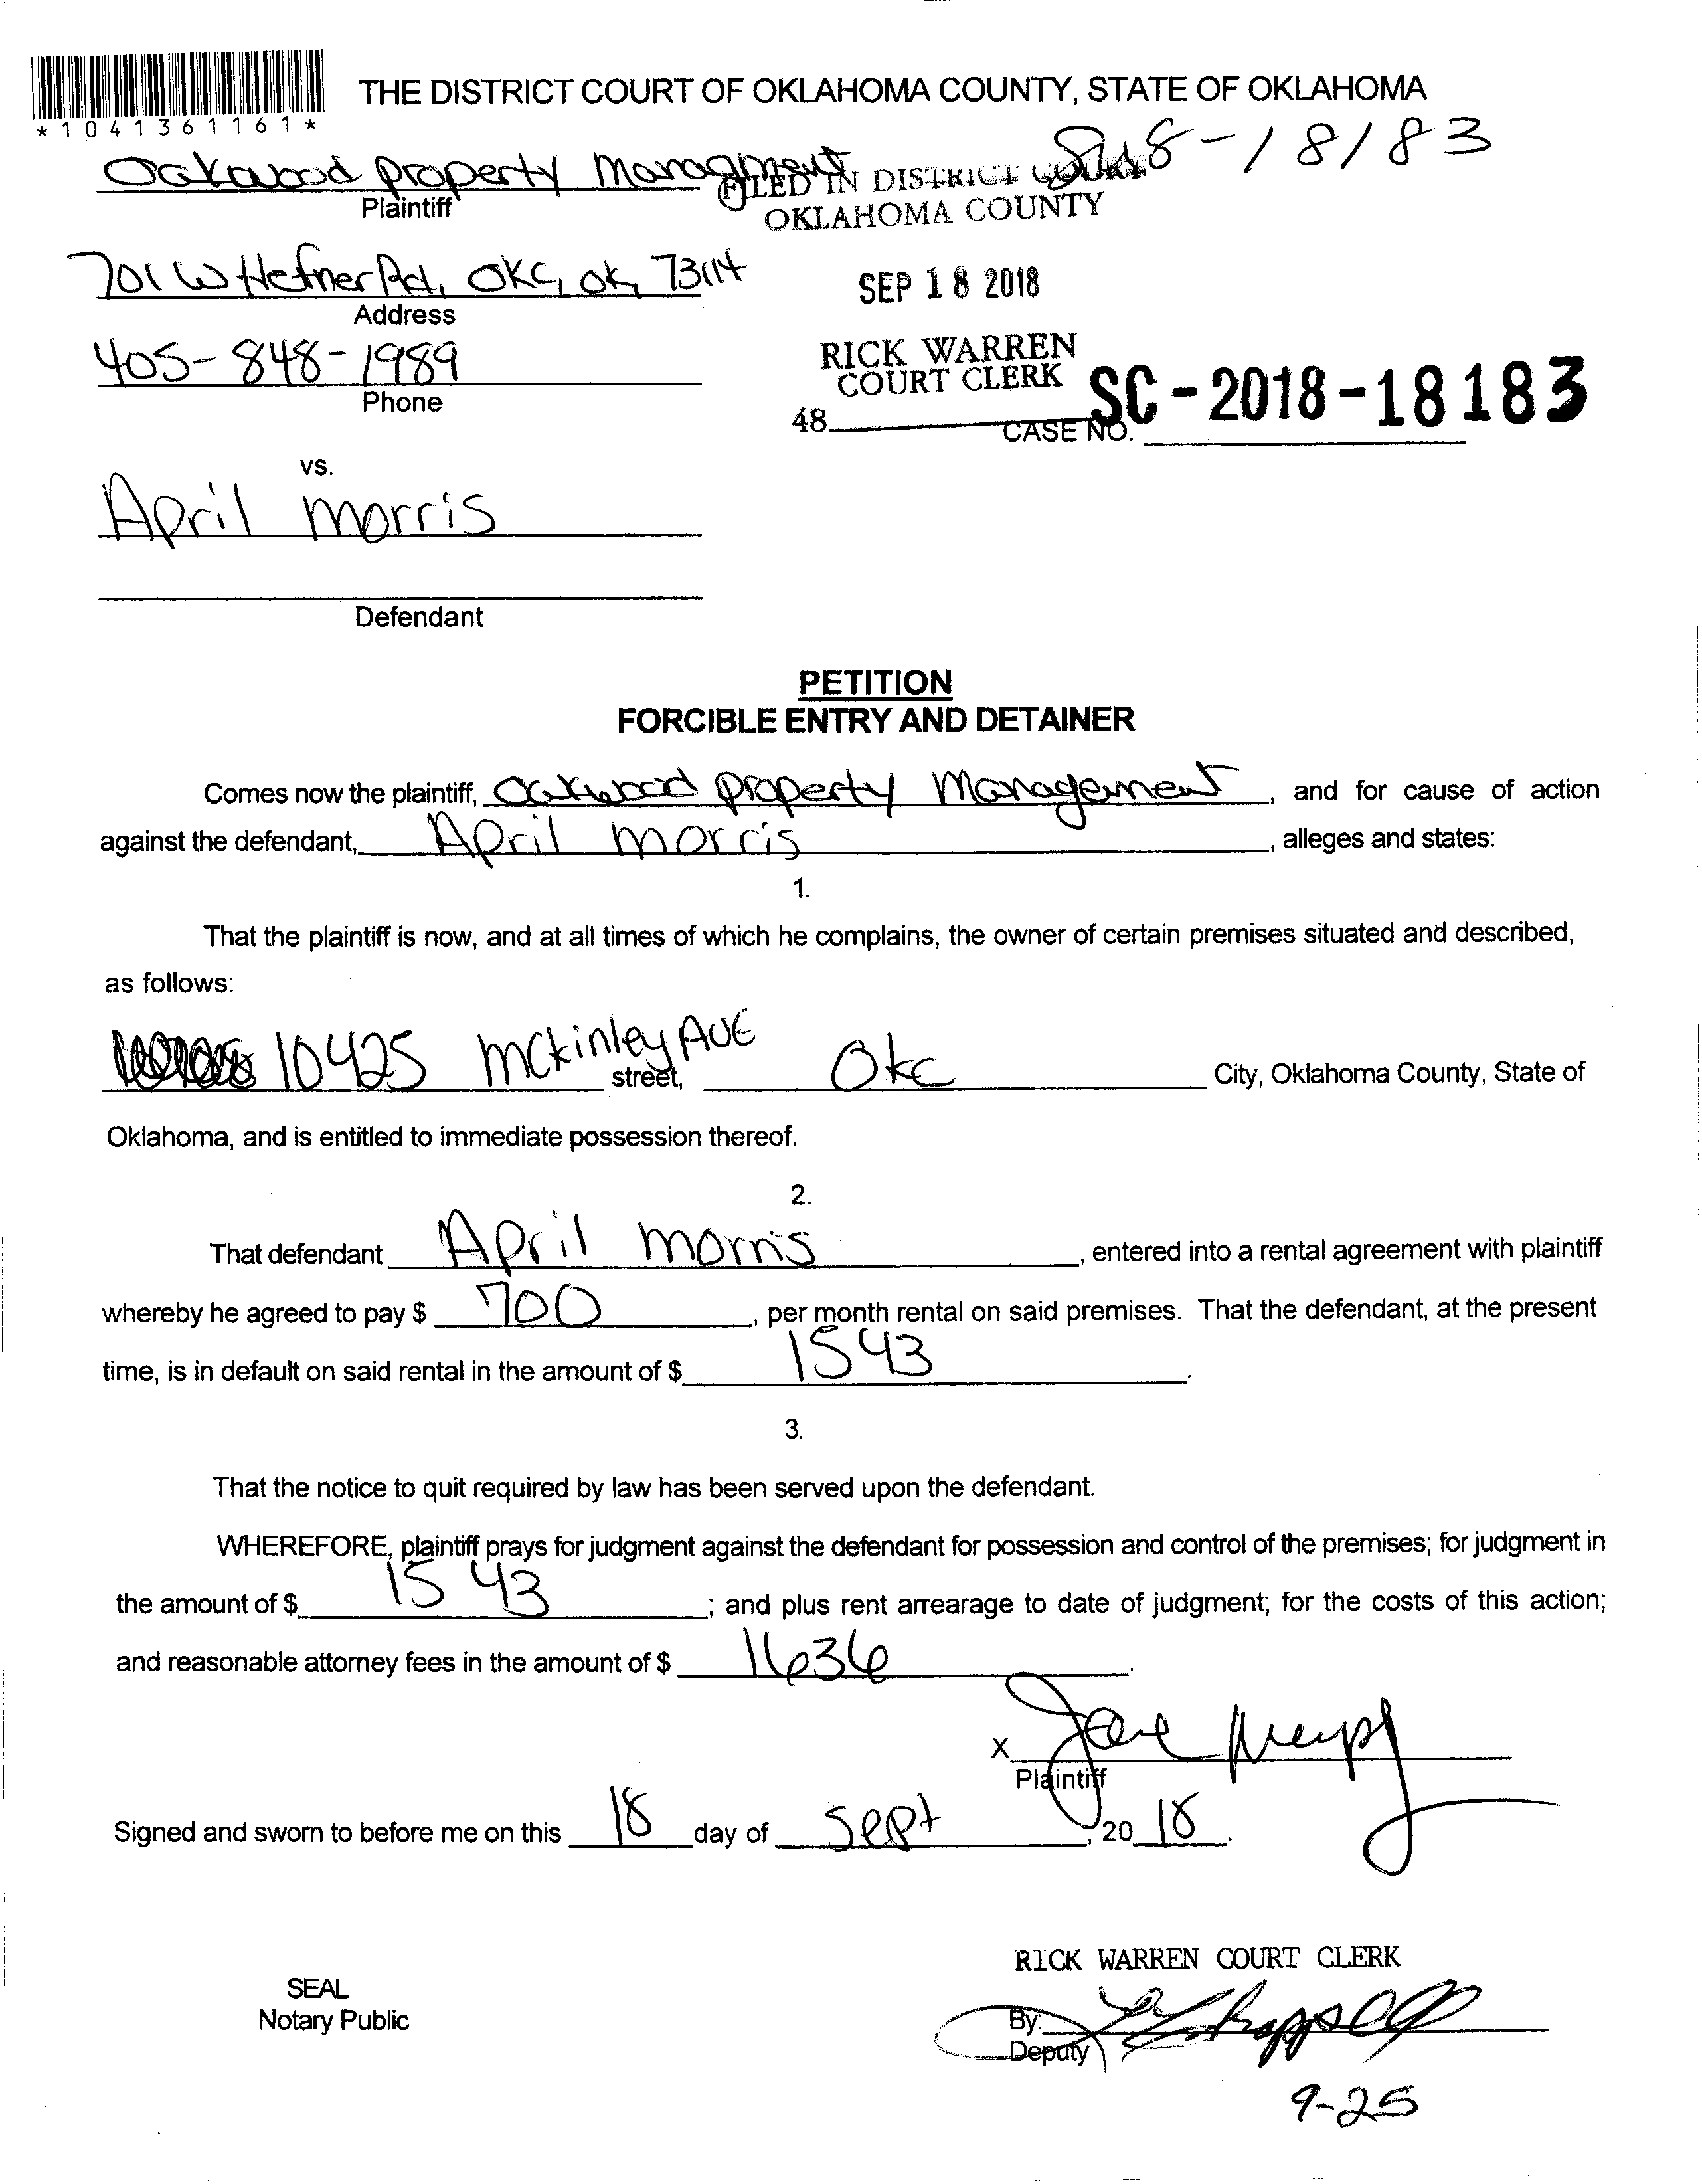 THE DISTRICT COURT OF OKLAHOMA COUNTY, STATE OF OKLAHOMA
*1041361161*
18-18183
Oakwood property Managment
Plaintiff
FILED IN DISTRICT COURT
OKLAHOMA COUNTY
701 W Hefner Rd, OKC, OK, 73114
Address
SEP 18 2018
405-848-1989
Phone
RICK WARREN
COURT CLERK
48
CASE NO. SC-2018-18183
vs.
April Morris
Defendant
PETITION
FORCIBLE ENTRY AND DETAINER
Comes now the plaintiff, Oakwood property Management, and for cause of action
against the defendant, April Morris, alleges and states:
1.
That the plaintiff is now, and at all times of which he complains, the owner of certain premises situated and described,
as follows:
10425 Mckinley AVE street, OKC City, Oklahoma County, State of
Oklahoma, and is entitled to immediate possession thereof.
2.
That defendant April Morris, entered into a rental agreement with plaintiff
whereby he agreed to pay $ 700, per month rental on said premises. That the defendant, at the present
time, is in default on said rental in the amount of $ 1543.
3.
That the notice to quit required by law has been served upon the defendant.
WHEREFORE, plaintiff prays for judgment against the defendant for possession and control of the premises; for judgment in
the amount of $ 1543; and plus rent arrearage to date of judgment; for the costs of this action;
and reasonable attorney fees in the amount of $ 1636.
X
Plaintiff
Signed and sworn to before me on this 18 day of Sept, 20 18.
RICK WARREN COURT CLERK
SEAL
Notary Public
By:
Deputy
9-25